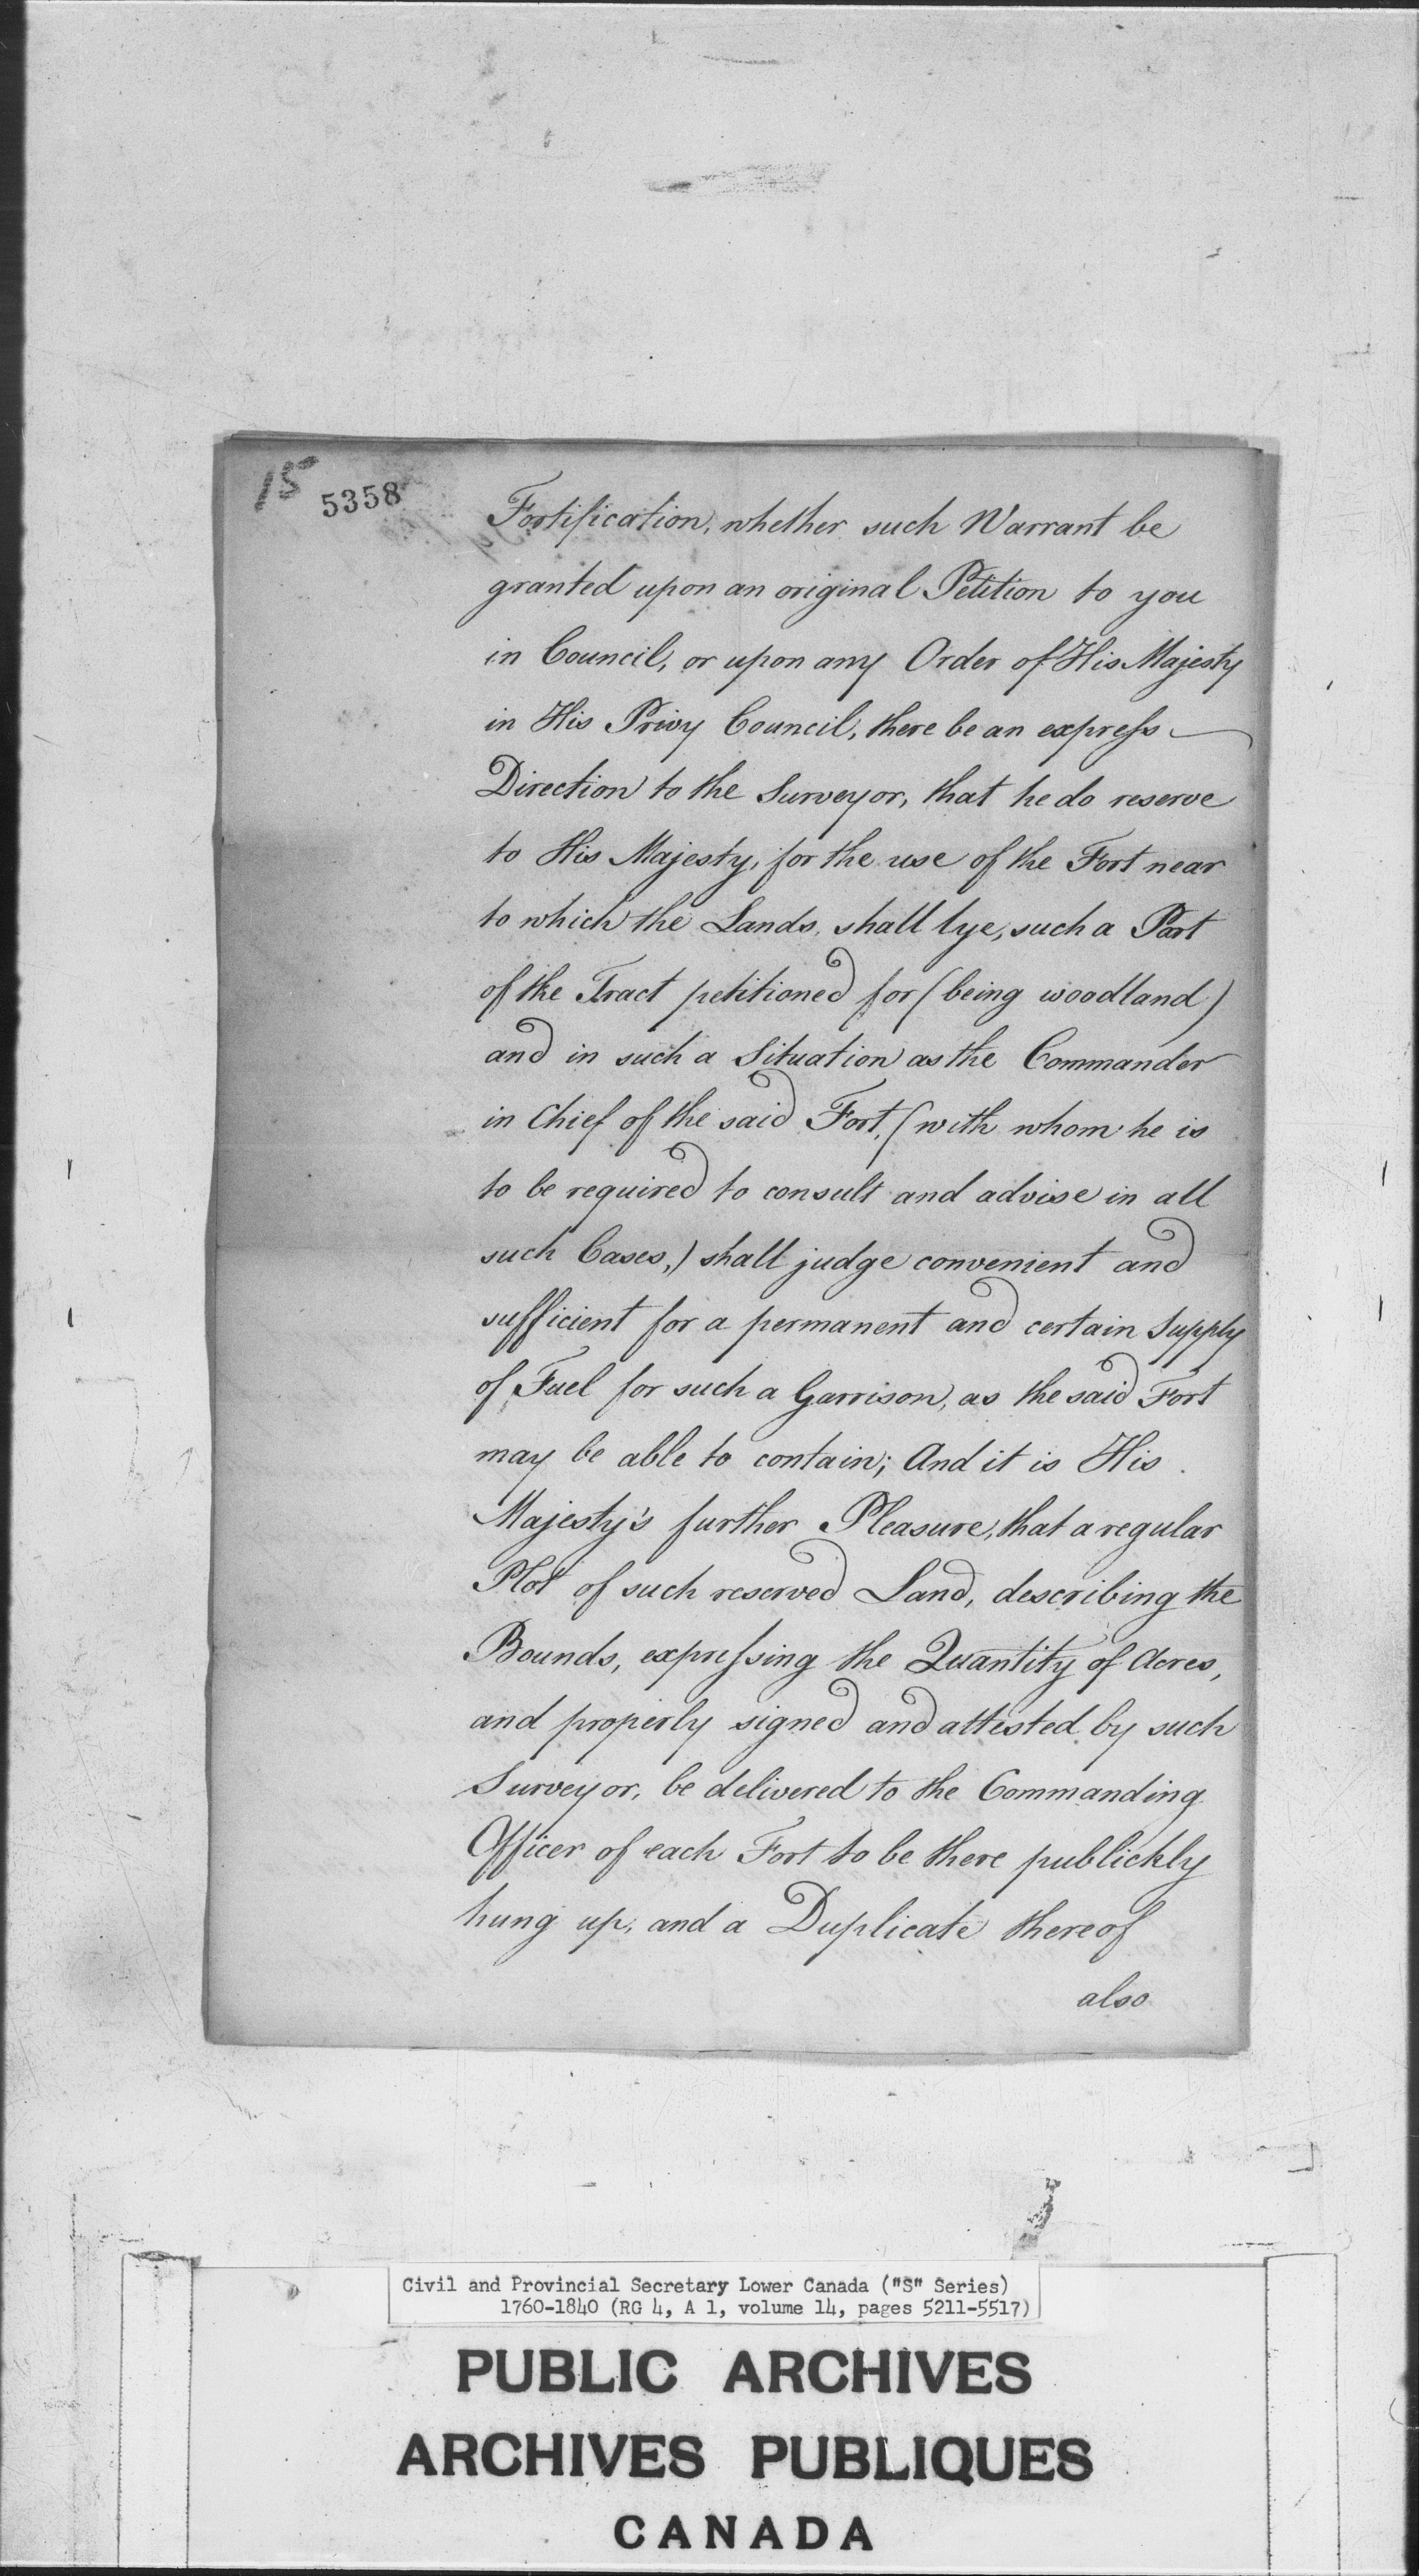 15
5358
Fortification, whether such Warrant be
granted upon an original Petition to you
in Council, or upon any Order of His Majesty
in His Privy Council, there be an express
Direction to the Surveyor, that he do reserve
to His Majesty, for the use of the Fort near
to which the Lands, shall lye, such a Part
of the Tract petitioned for (being woodland)
and in such a Situation as the Commander
in Chief of the said Fort, (with whom he is
to be required to consult and advise in all
such Cases,) shall judge convenient and
sufficient for a permanent and certain Supply
of Fuel for such a Garrison, as the said Fort
may be able to contain; And it is His
Majesty's further Pleasure, that a regular
Plot of such reserved Land, describing the
Bounds, expressing the Quantity of Acres,
and properly signed and attested by such
Surveyor, be delivered to the Commanding
Officer of each Fort to be there publickly
hung up, and a Duplicate thereof
also
Civil and Provincial Secretary Lower Canada ("S" Series)
1760-1840 (RG 4, A 1, volume 14, pages 5211-5517)
PUBLIC ARCHIVES
ARCHIVES PUBLIQUES
CANADA